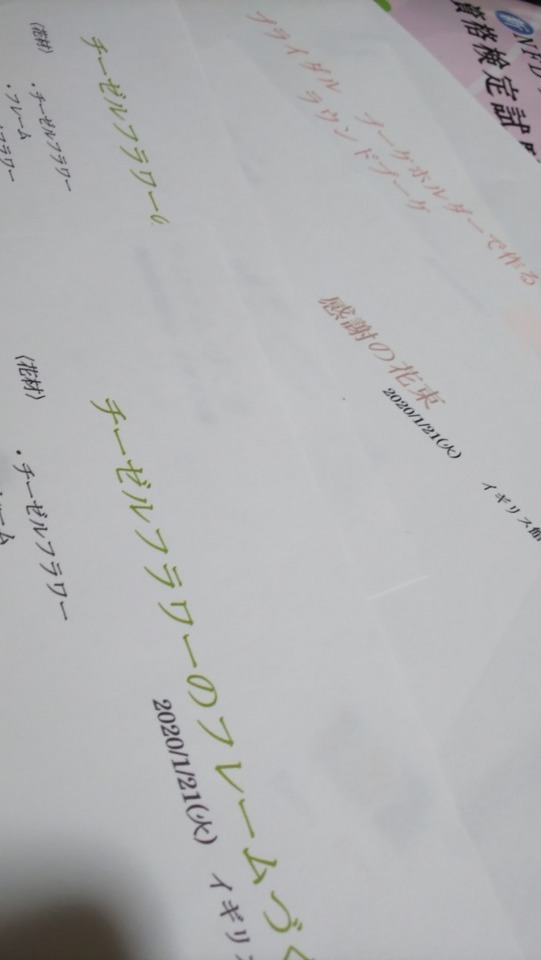 NFD
資格検定試
ブライダル ブーケホルダーで作る
ラウンドブーケ
感謝の花束
2020/1/21(火)
イギリス館
チーゼルフラワー
(花材)
・チーゼルフラワー
・フレーム
フラワー
チーゼルフラワーのフレームづく
2020/1/21(火) イギリ
(花材)
・チーゼルフラワー
ーム